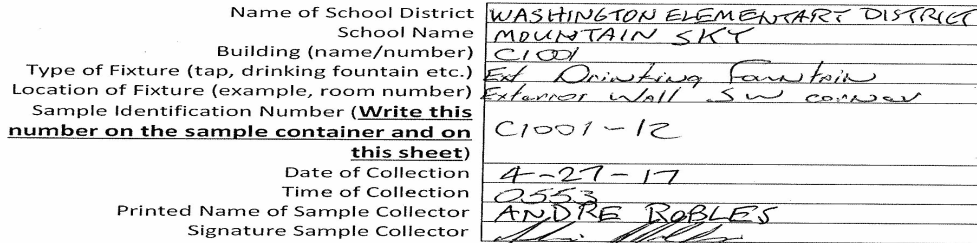 Name of School District WASHINGTON ELEMENTARY DISTRICT
School Name MOUNTAIN SKY
Building (name/number) C1001
Type of Fixture (tap, drinking fountain etc.) Ext Drinking Fountain
Location of Fixture (example, room number) Exterior Wall SW corner
Sample Identification Number (Write this
number on the sample container and on C1001-12
this sheet)
Date of Collection 4-27-17
Time of Collection 0553
Printed Name of Sample Collector ANDRE ROBLES
Signature Sample Collector